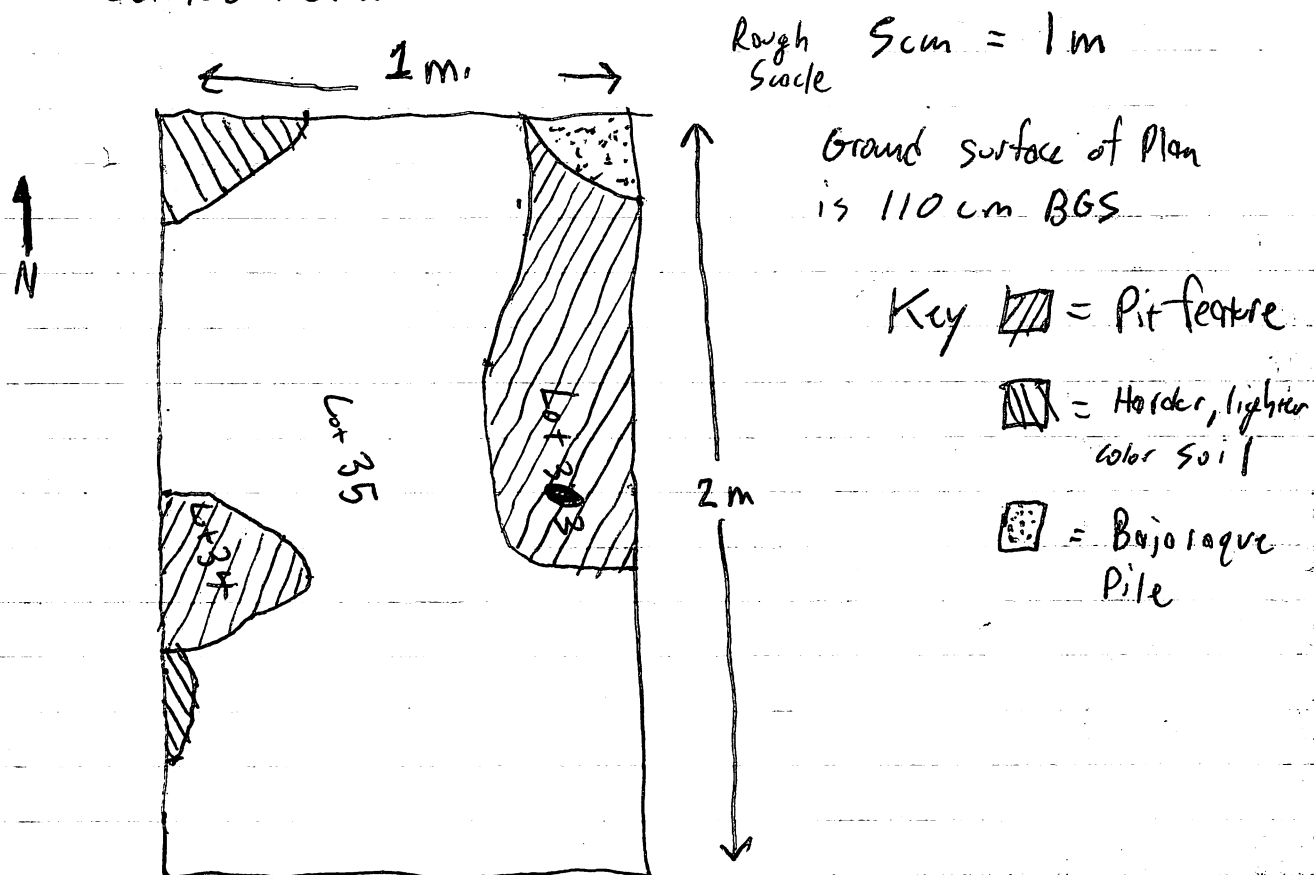 1 m.
Rough 5cm = 1m
Scacle
Ground surface of Plan
is 110 cm BGS
N
Key = Pit feature
= Harder, lighter
color soil
= Bajaraque
Pile
Lot 35
Lot 33
Lot 34
2 m